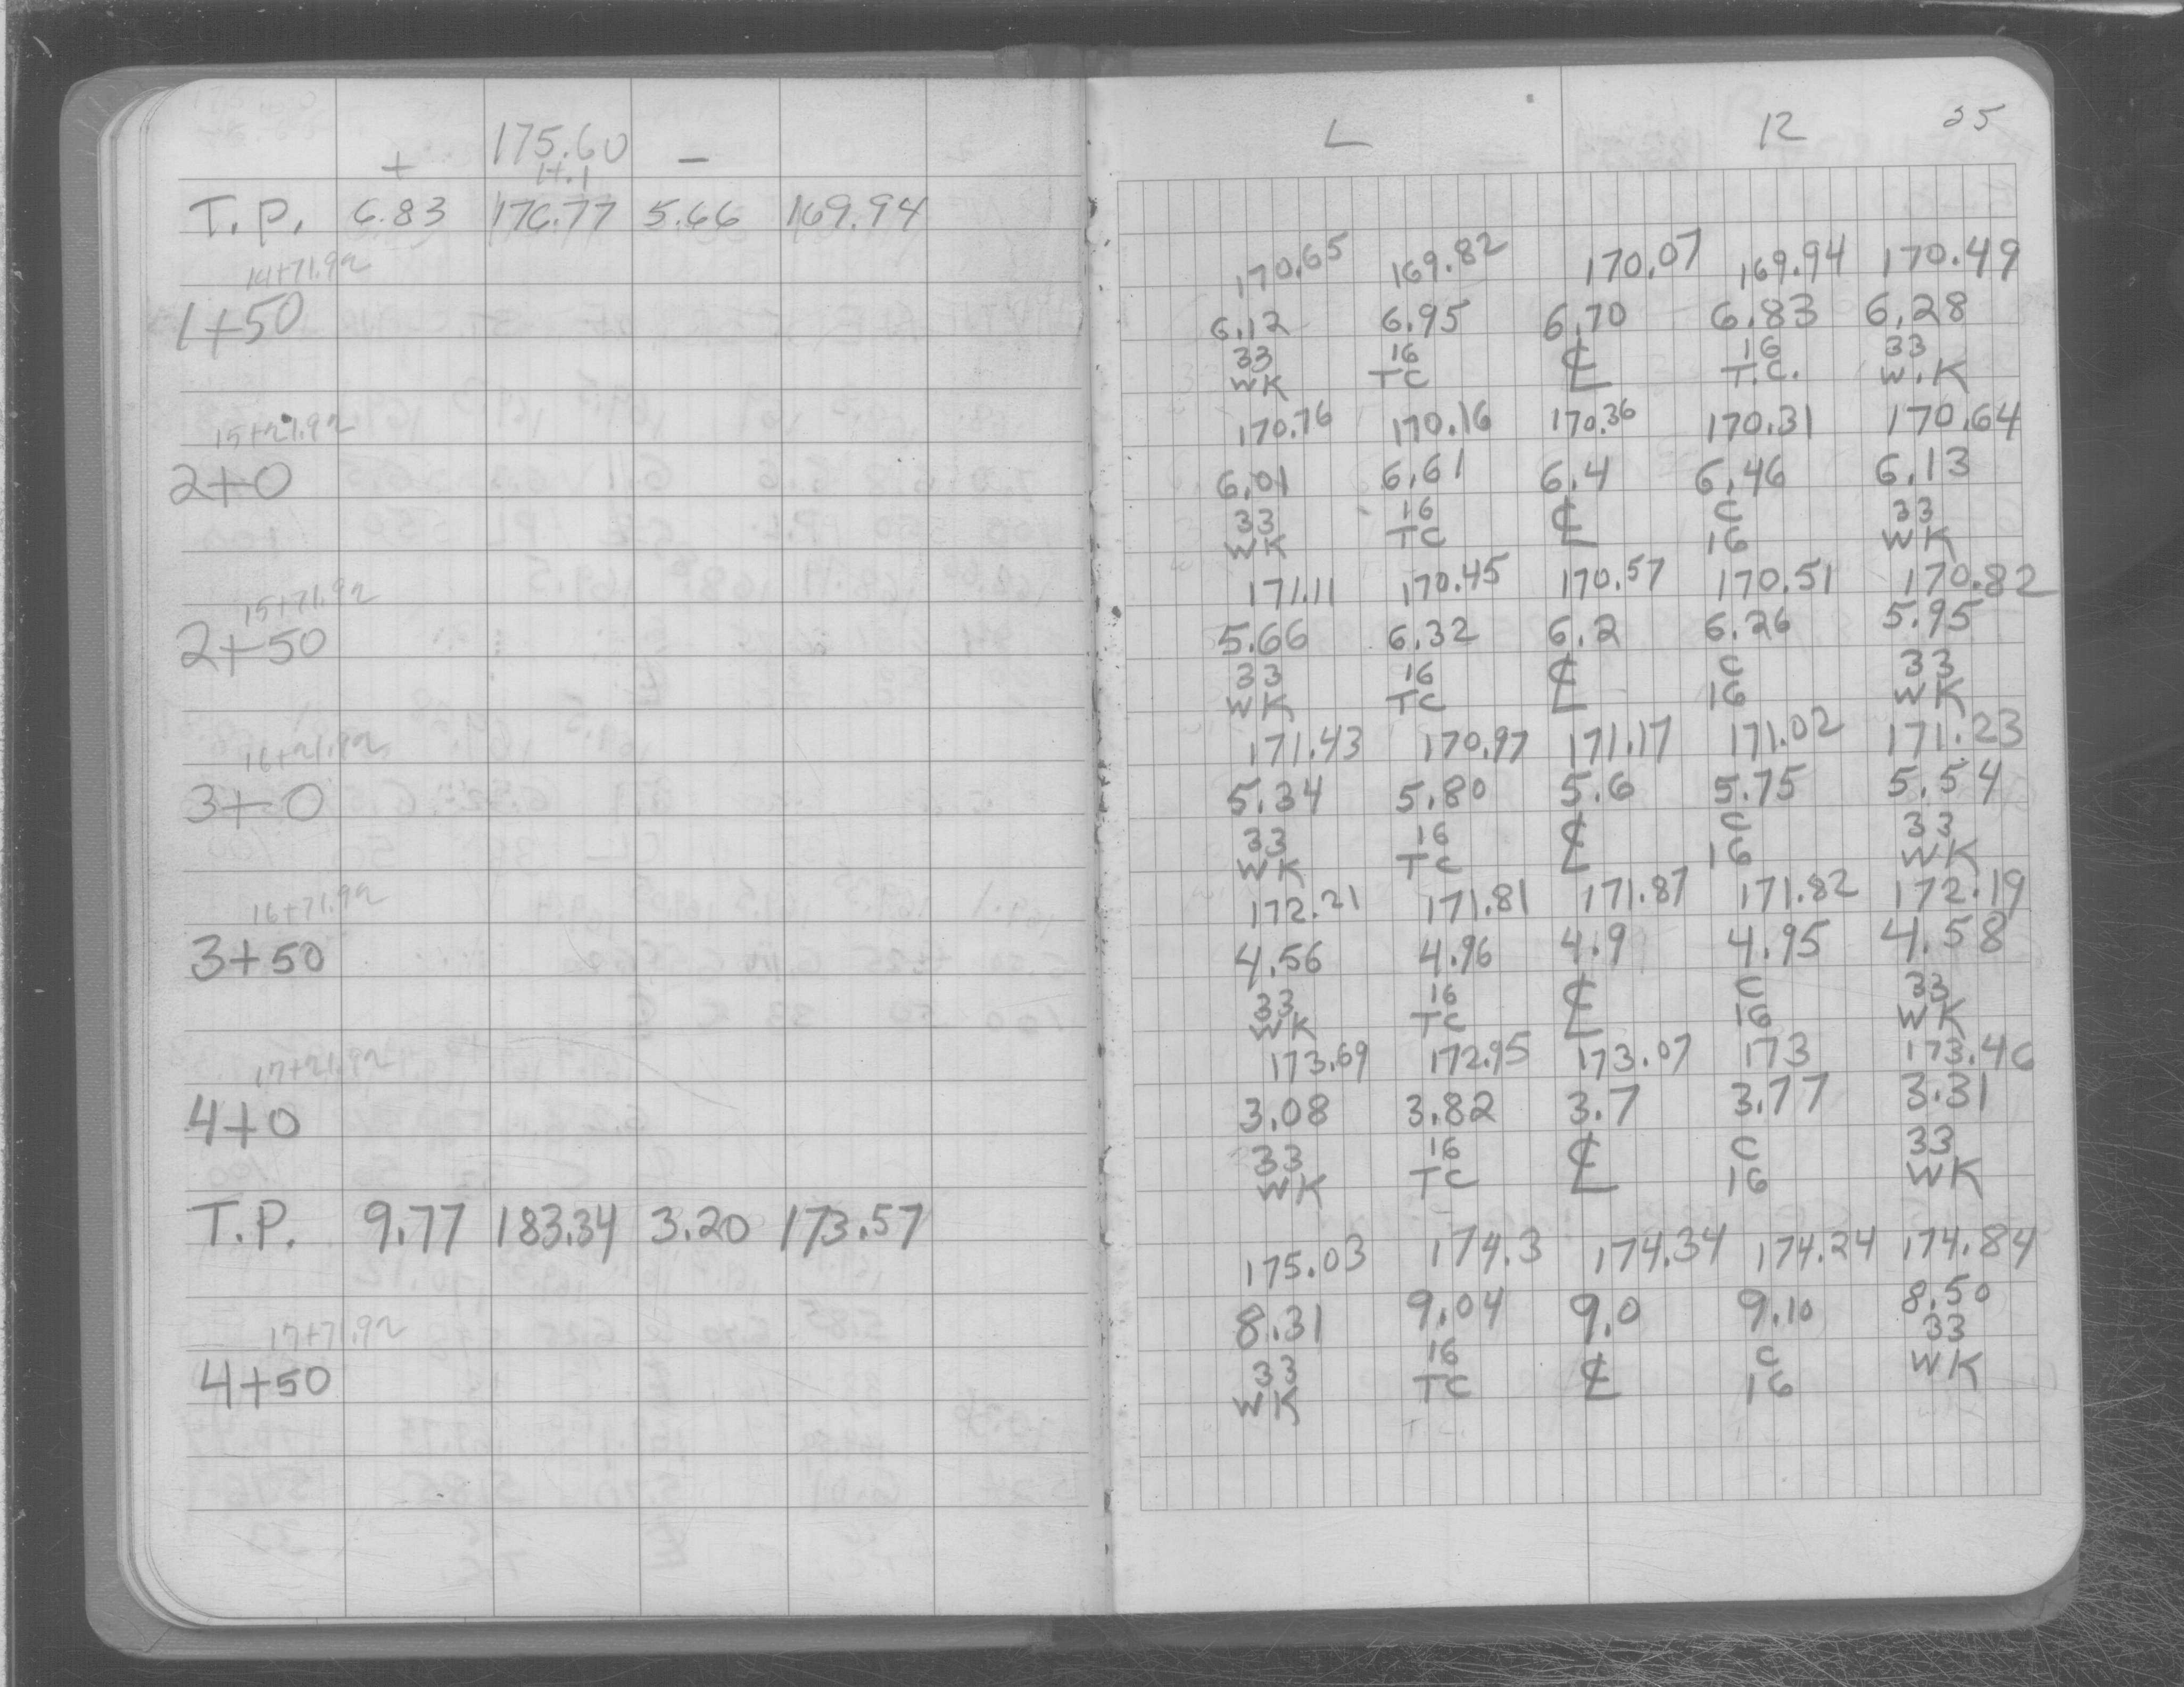 175.60
+ H.I −
T.P. 6.83 176.77 5.66 169.94
14+71.92
1+50
15+21.92
2+0
15+71.92
2+50
16+21.92
3+0
16+71.92
3+50
17+21.92
4+0
T.P. 9.77 183.34 3.20 173.57
17+71.92
4+50
L R 35
170.65 169.82 170.07 169.94 170.49
6.12 6.95 6.70 6.83 6.28
33 16 ℄ 16 33
WK TC T.C. W.K
170.76 170.16 170.36 170.31 170.64
6.01 6.61 6.4 6.46 6.13
33 16 ℄ C 33
WK TC 16 WK
171.11 170.45 170.57 170.51 170.82
5.66 6.32 6.2 6.26 5.95
33 16 ℄ C 33
WK TC 16 WK
171.43 170.97 171.17 171.02 171.23
5.34 5.80 5.6 5.75 5.54
33 16 ℄ C 33
WK TC 16 WK
172.21 171.81 171.87 171.82 172.19
4.56 4.96 4.9 4.95 4.58
33 16 ℄ C 33
WK TC 16 WK
173.69 172.95 173.07 173 173.46
3.08 3.82 3.7 3.77 3.31
33 16 ℄ C 33
WK TC 16 WK
175.03 174.3 174.34 174.24 174.84
8.31 9.04 9.0 9.10 8.50
33 16 ℄ C 33
WK TC 16 WK